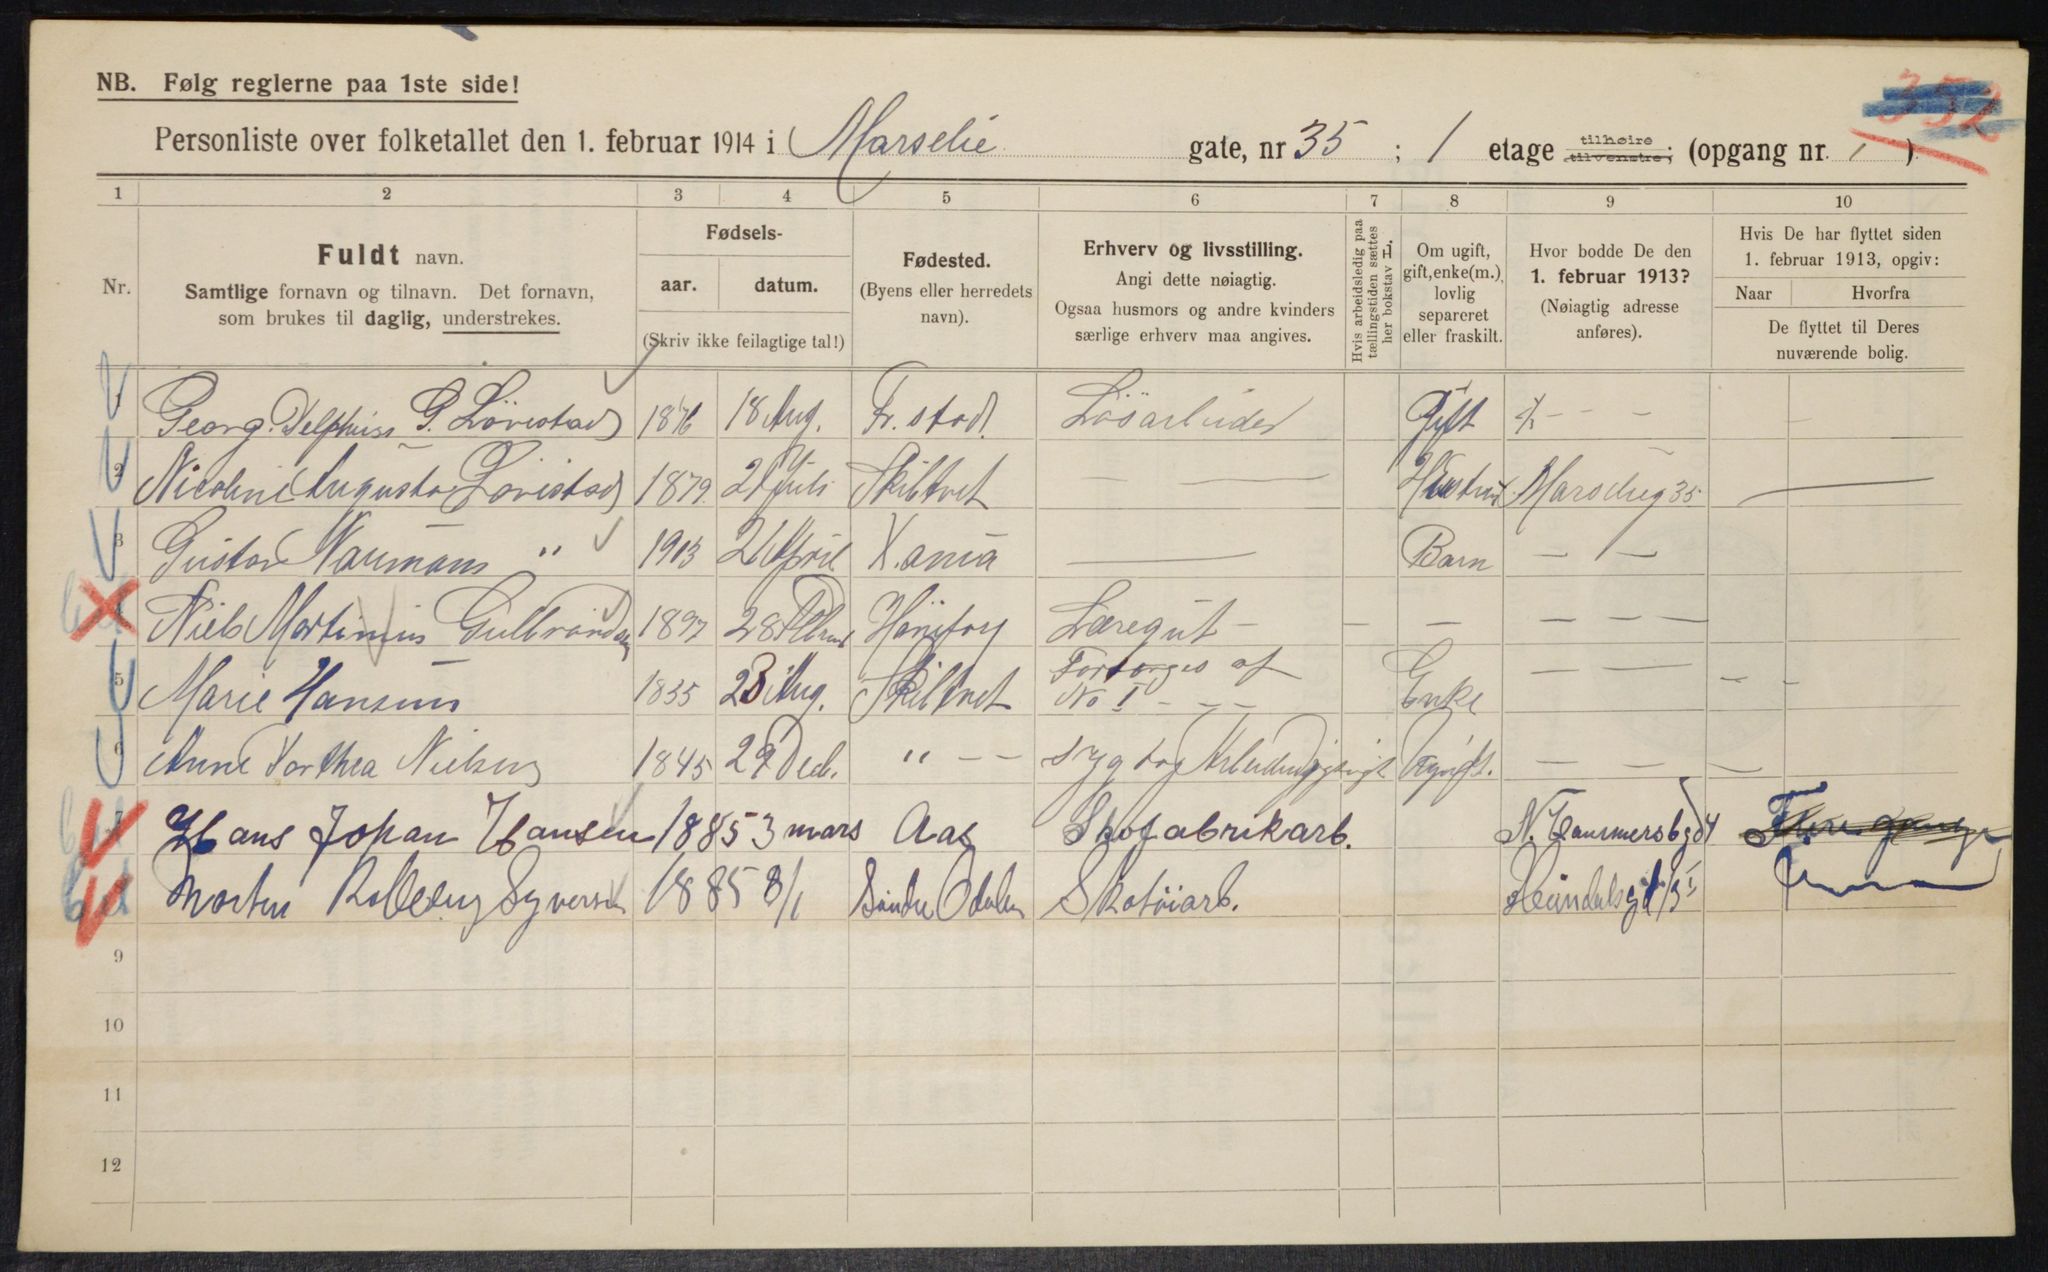 352
NB. Følg reglerne paa 1ste side!
Personliste over folketallet den 1. februar 1914 i Marselie gate, nr 35 ; 1 etage tilhøire tilvenstre; (opgang nr. 1 )
1 2 3 4 5 6 7 8 9 10
Nr.
Fuldt navn.
Samtlige fornavn og tilnavn. Det fornavn,
som brukes til daglig, understrekes.
Fødsels-
aar. datum.
(Skriv ikke feilagtige tal!)
Fødested.
(Byens eller herredets
navn).
Erhverv og livsstilling.
Angi dette nøiagtig.
Ogsaa husmors og andre kvinders
særlige erhverv maa angives.
Hvis arbeidsledig paa
tællingstiden sættes
her bokstav L.
Om ugift,
gift, enke(m.),
lovlig
separeret
eller fraskilt.
Hvor bodde De den
1. februar 1913?
(Nøiagtig adresse
anføres).
Hvis De har flyttet siden
1. februar 1913, opgiv:
Naar Hvorfra
De flyttet til Deres
nuværende bolig.
1 Georg. Delphius G. Lövestad 1876 18 Aug. Fr. stad. Lösarbeider Gift
2 Nicoline Augusta Lövistad 1879. 21 Juli Skibtvet — — Hustru Marselieg 35 —
3 Gustav Normans " 1913 26 April X.ania — Barn — —
4 Niels Martinius Gulbrandsen 1897 28 Februar Läregut — — — — —
5 Marie Hansens 1835 23 Aug. Skibtvet Forsørges af No I - - - Enke — — - -
6 Anne Dorthea Nielsen 1845 29 Decb. " - - syg og Ugift. — — — —
7 Hans Johan Hansen 1885 3 mars Aas Skofabrikarb. N. Hammersbg
8 Morten Syversen 1885 8/1 Söndre Odalen Skotöiarb.
9
10
11
12